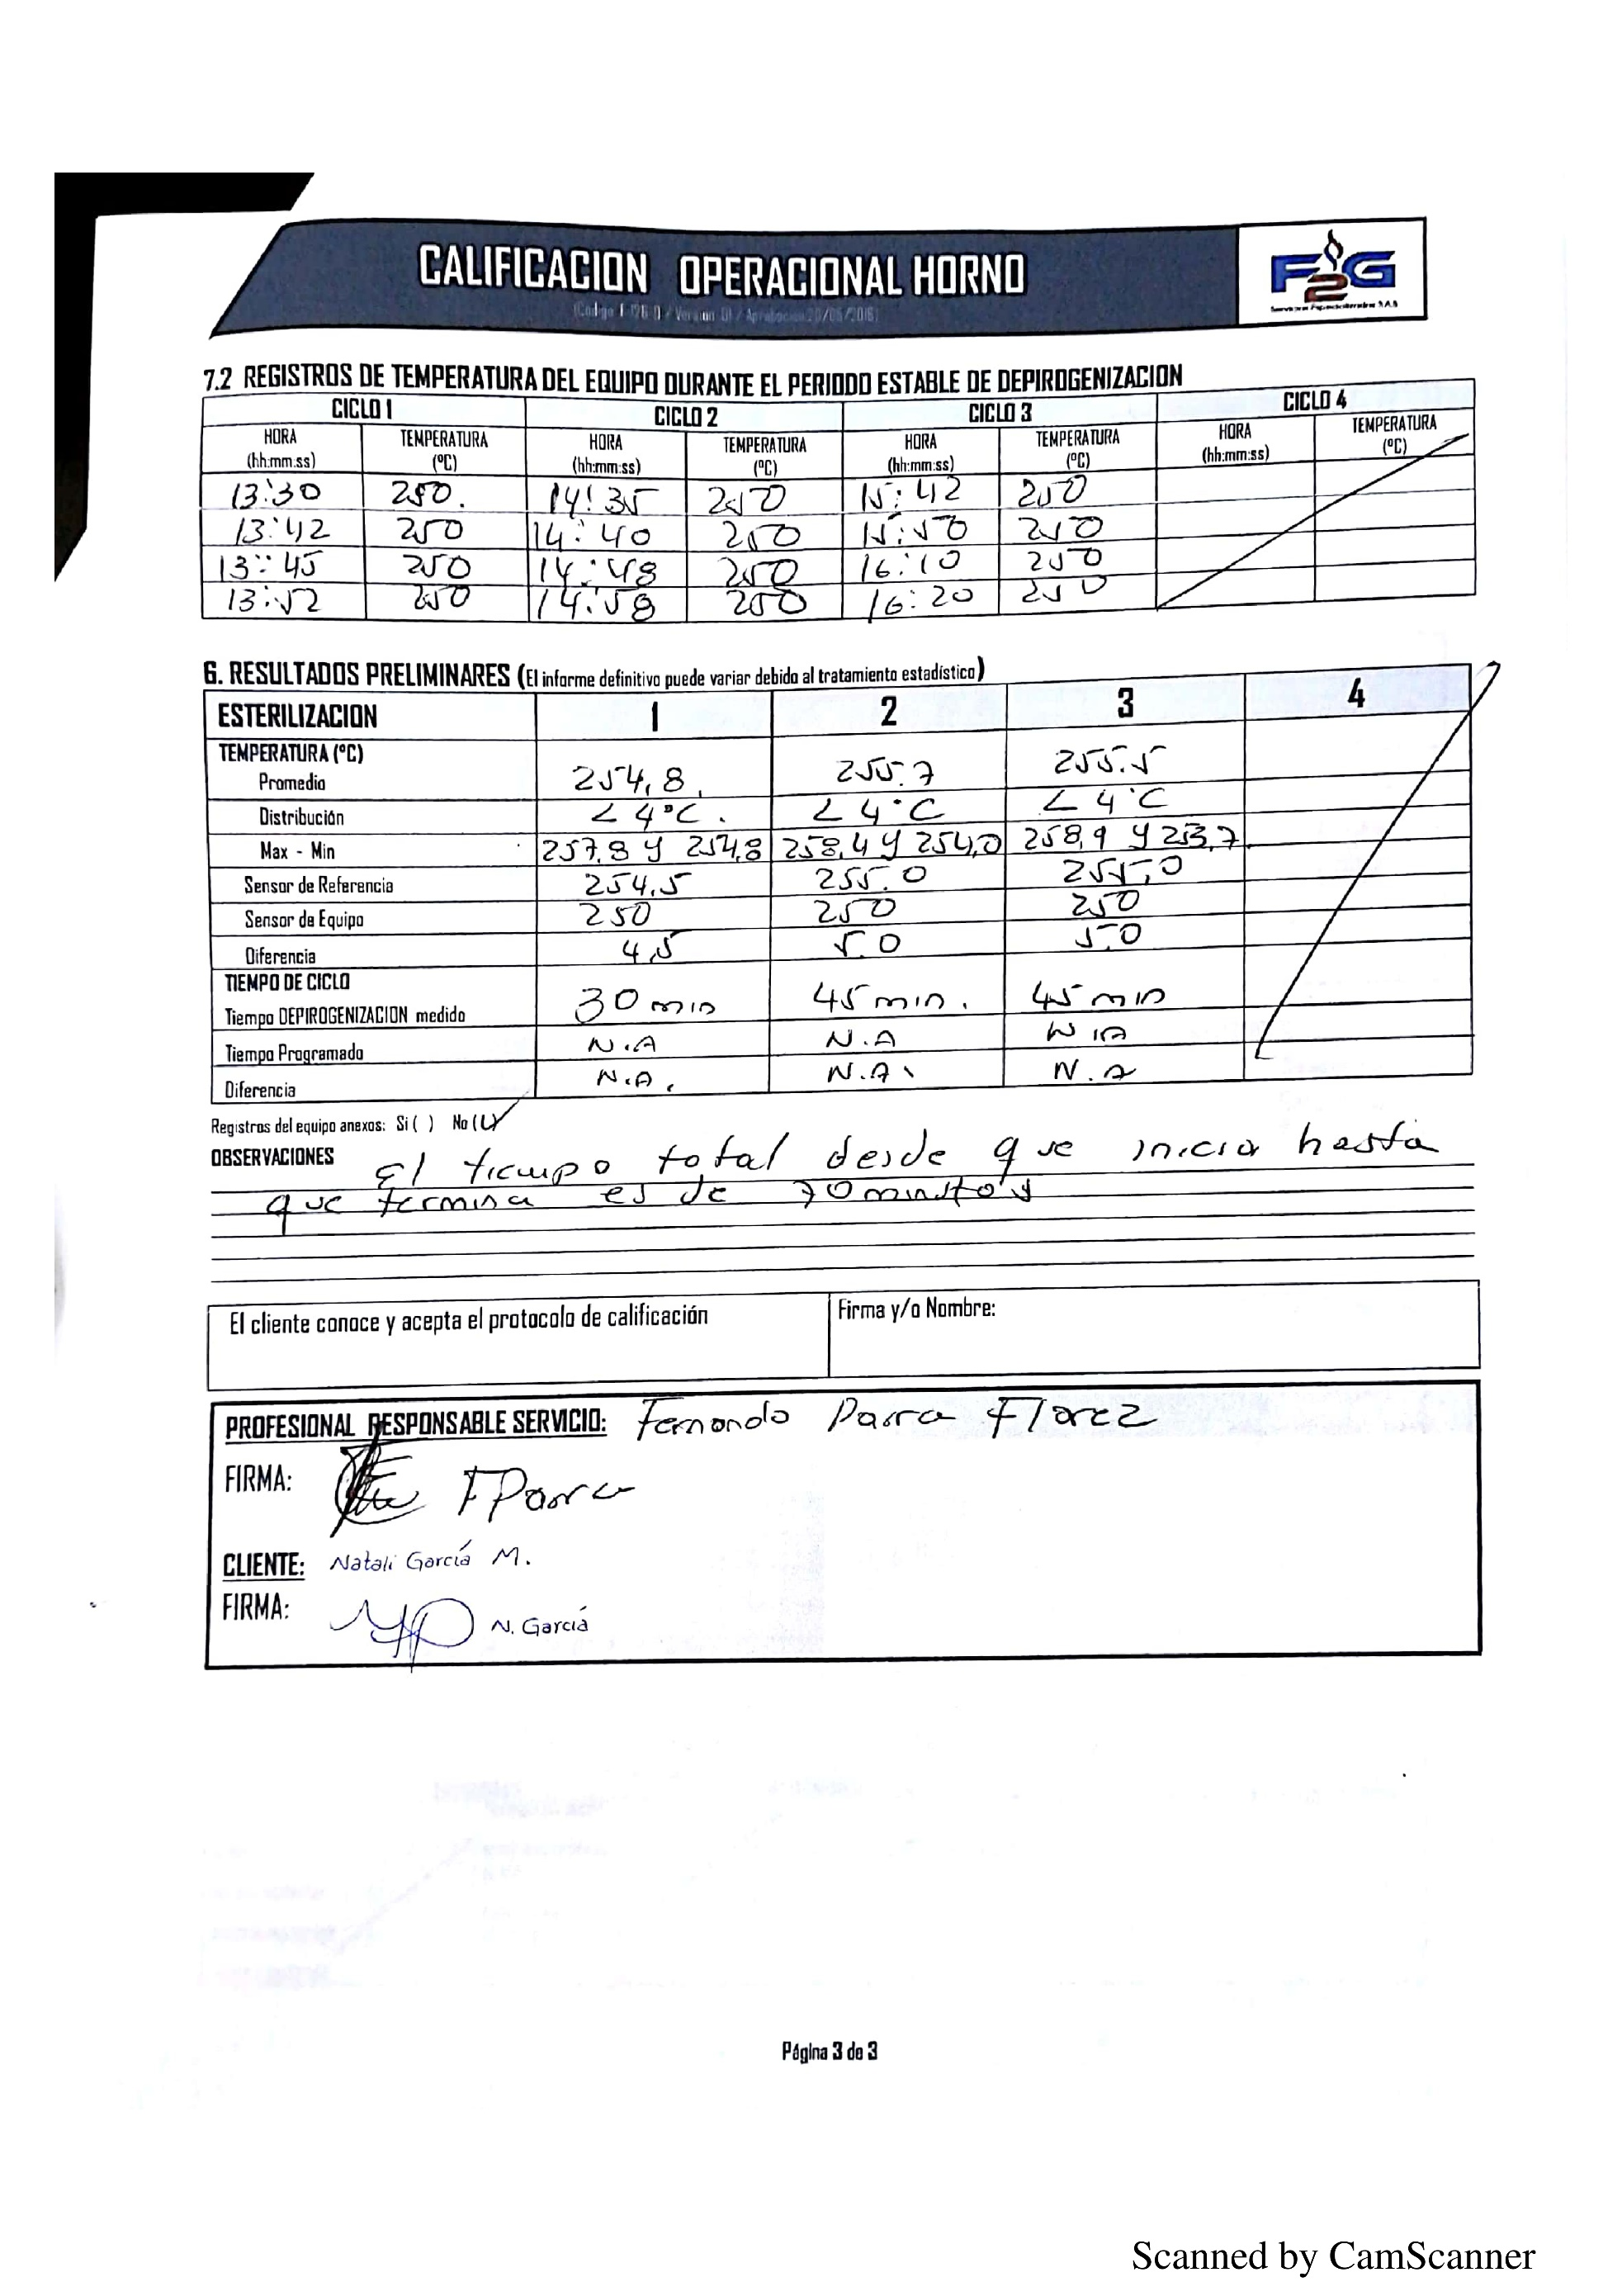 CALIFICACION OPERACIONAL HORNO
F2G
7.2 REGISTROS DE TEMPERATURA DEL EQUIPO DURANTE EL PERIODO ESTABLE DE DEPIROGENIZACION
CICLO 1 CICLO 2 CICLO 3 CICLO 4
HORA TEMPERATURA HORA TEMPERATURA HORA TEMPERATURA HORA TEMPERATURA
(hh:mm:ss) (ºC) (hh:mm:ss) (ºC) (hh:mm:ss) (ºC) (hh:mm:ss) (ºC)
13:30 250. 14:35 250 15:42 250
13:42 250 14:40 250 15:50 250
13:45 250 14:48 250 16:10 250
13:52 250 14:58 250 16:20 250
6. RESULTADOS PRELIMINARES (El informe definitivo puede variar debido al tratamiento estadístico)
ESTERILIZACION 1 2 3 4
TEMPERATURA (ºC)
Promedio 254,8 255.7 255.5
Distribución < 4°C. < 4°C < 4°C
Max - Min 257,8 y 254,8 258,4 y 254,0 258,9 y 253,7
Sensor de Referencia 254,5 255.0 255,0
Sensor de Equipo 250 250 250
Diferencia 4,5 5.0 5.0
TIEMPO DE CICLO
Tiempo DEPIROGENIZACION medido 30 min 45 min. 45 min
Tiempo Programado N.A N.A N.A
Diferencia N.A. N.A. N.A
Registros del equipo anexos: Si ( ) No (✓)
OBSERVACIONES El tiempo total desde que inicia hasta
que termina es de 70 minutos
El cliente conoce y acepta el protocolo de calificación Firma y/o Nombre:
PROFESIONAL RESPONSABLE SERVICIO: Fernando Parra Florez
FIRMA: FParra
CLIENTE: Natali García M.
FIRMA: N. García
Página 3 de 3
Scanned by CamScanner